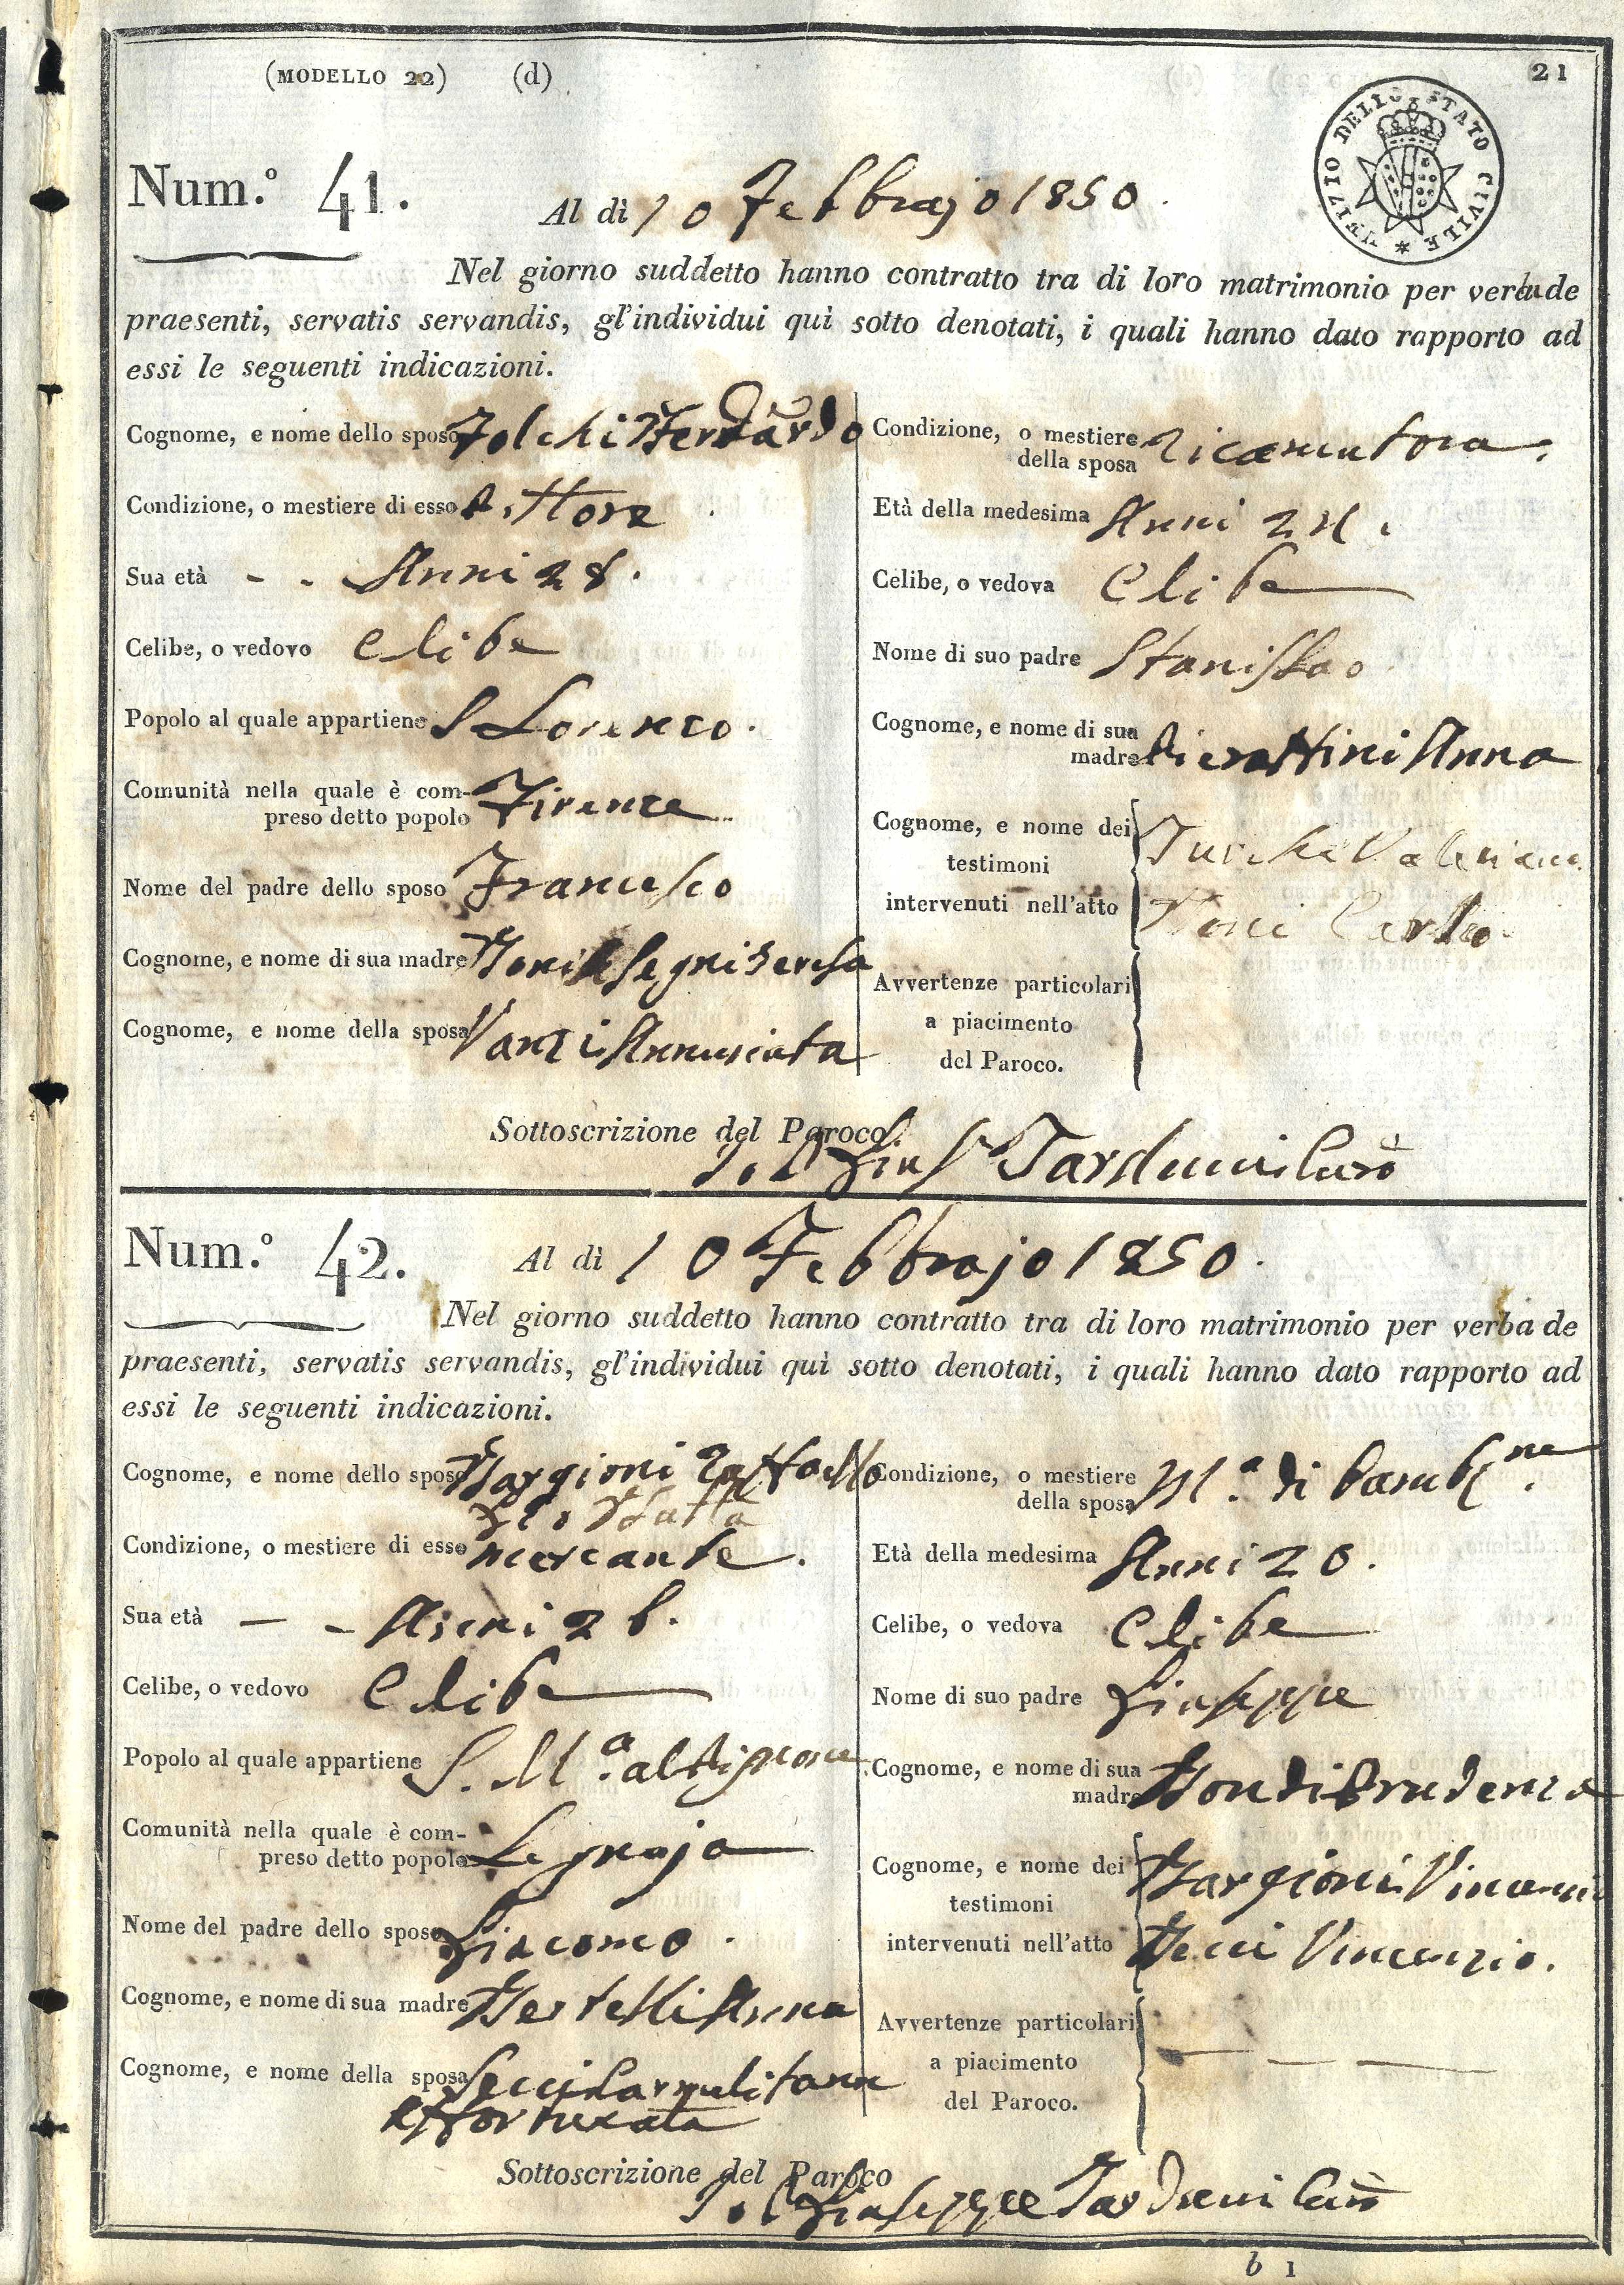 (MODELLO 22) (d)
21
UFIZIO DELLO STATO CIVILE *
Num.º 41.
Al dì 10 Febbrajo 1850.
Nel giorno suddetto hanno contratto tra di loro matrimonio per verba de
praesenti, servatis servandis, gl'individui quì sotto denotati, i quali hanno dato rapporto ad
essi le seguenti indicazioni.
Cognome, e nome dello sposo Folchi
Condizione, o mestiere di esso Pittore
Sua età - - Anni 28.
Celibe, o vedovo Celibe
Popolo al quale appartiene S Lorenzo.
Comunità nella quale è com-
preso detto popolo Firenze
Nome del padre dello sposo Francesco
Cognome, e nome di sua madre Teresa
Cognome, e nome della sposa Vanzi Annunziata
Condizione, o mestiere
della sposa ricamatora.
Età della medesima Anni
Celibe, o vedova Celibe
Nome di suo padre Stanislao
Cognome, e nome di sua
madre Pierattini Anna
Cognome, e nome dei
testimoni
intervenuti nell'atto
Turchi Valeriano
Carlo
Avvertenze particolari
a piacimento
del Paroco.
Sottoscrizione del Paroco.
Tarduini Curò
Num.º 42.
Al dì 10 Febbrajo 1850.
Nel giorno suddetto hanno contratto tra di loro matrimonio per verba de
praesenti, servatis servandis, gl'individui quì sotto denotati, i quali hanno dato rapporto ad
essi le seguenti indicazioni.
Cognome, e nome dello sposo Bargioni Raffaello
Gio Batta
Condizione, o mestiere di esso mercante.
Sua età — - Anni
Celibe, o vedovo Celibe
Popolo al quale appartiene S. M.ª al Pignone
Comunità nella quale è com-
preso detto popolo Legnaja
Nome del padre dello sposo Giacomo.
Cognome, e nome di sua madre Bertelli Anna
Cognome, e nome della sposa Seci Carmelitana
Fortunata
Condizione, o mestiere
della sposa M.ª di bamb.ne
Età della medesima Anni 20.
Celibe, o vedova Celibe
Nome di suo padre Giuseppe
Cognome, e nome di sua
madre Bondi Prudenza
Cognome, e nome dei
testimoni
intervenuti nell'atto
Bargioni Vincenzio
Vincenzio.
Avvertenze particolari
a piacimento
del Paroco.
Sottoscrizione del Paroco
Giuseppe Tarduini Curò
b 1